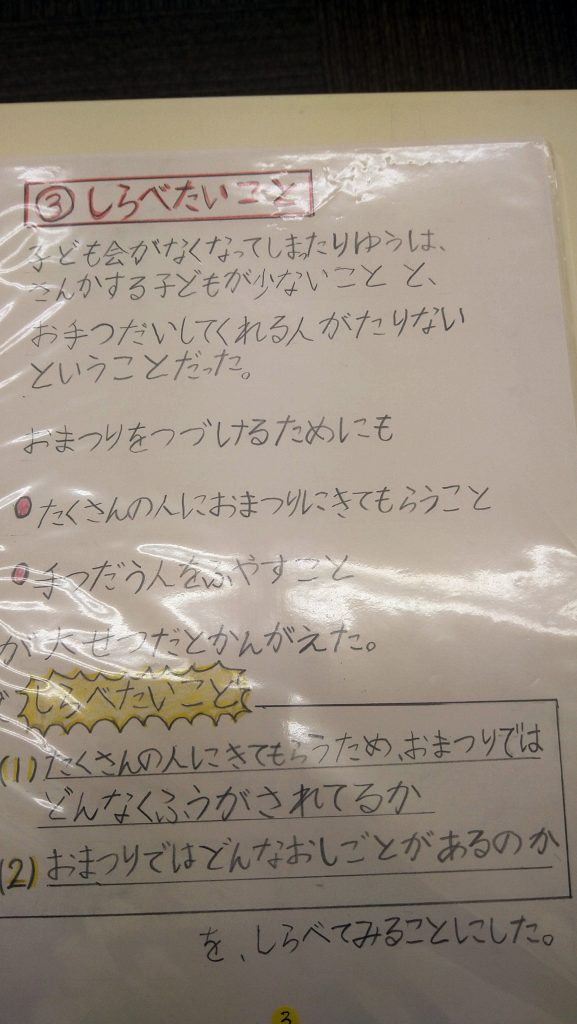 ③ しらべたいこと
子ども会がなくなってしまったりゆうは、
さんかする子どもが少ないこと と、
お手つだいしてくれる人がたりない
ということだった。
おまつりをつづけるためにも
たくさんの人におまつりにきてもらうこと
手つだう人をふやすこと
が大せつだとかんがえた。
しらべたいこと
(1) たくさんの人にきてもらうため、おまつりでは
どんなくふうがされてるか
(2) おまつりではどんなおしごとがあるのか
を、しらべてみることにした。
3